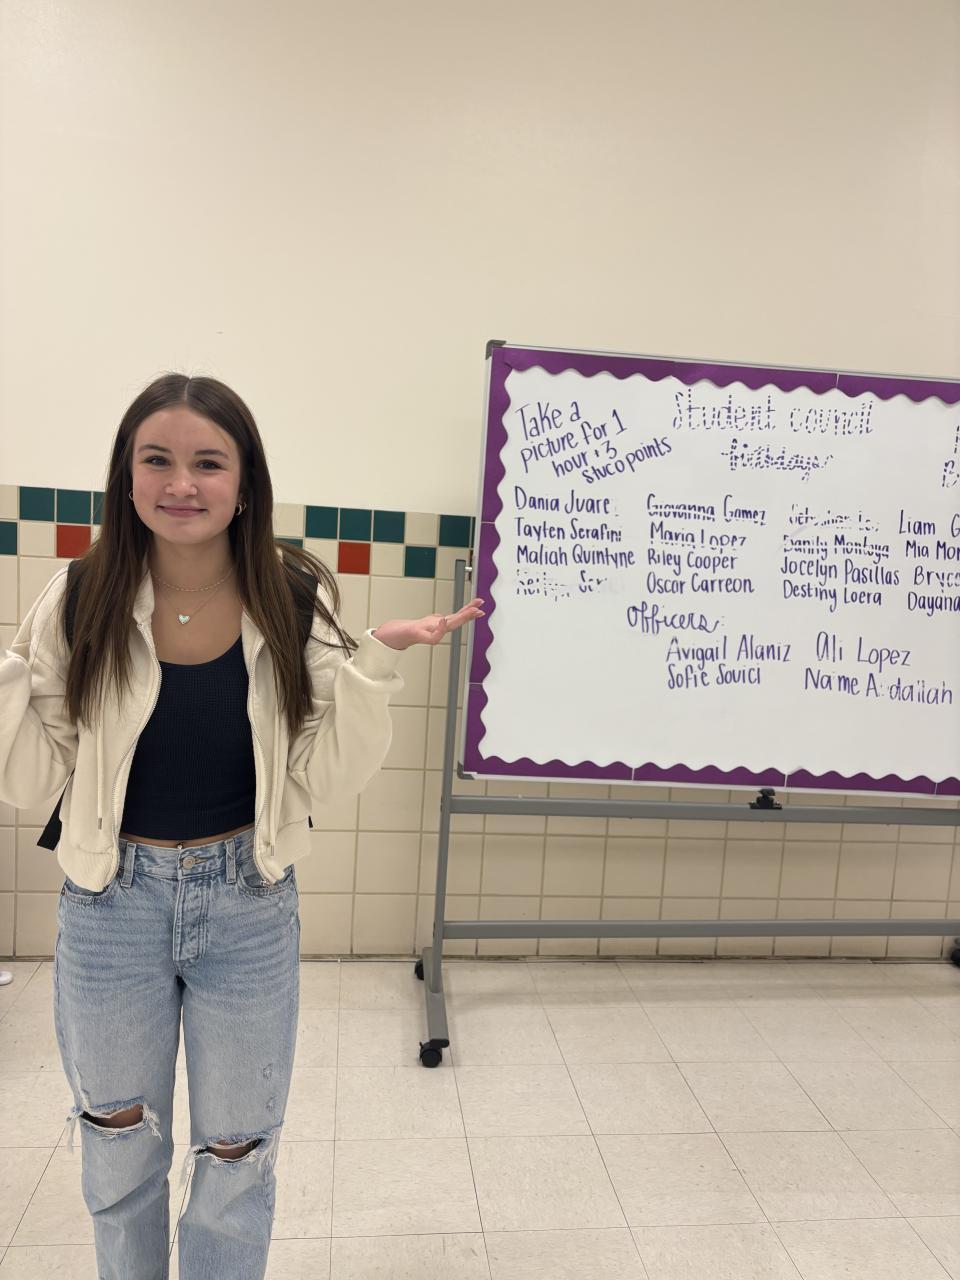 Take a
picture for 1
hour + 3
stuco points
Student council
birthdays
Dania Juare
Tayten Serafini
Maliah Quintyne
Giovanna Gamez
Maria Lopez
Riley Cooper
Oscar Carreon
Danily Montoya
Jocelyn Pasillas
Destiny Loera
Liam G
Mia Mor
Bryce
Dayana
Officers:
Avigail Alaniz
Sofie Sovici
Ali Lopez